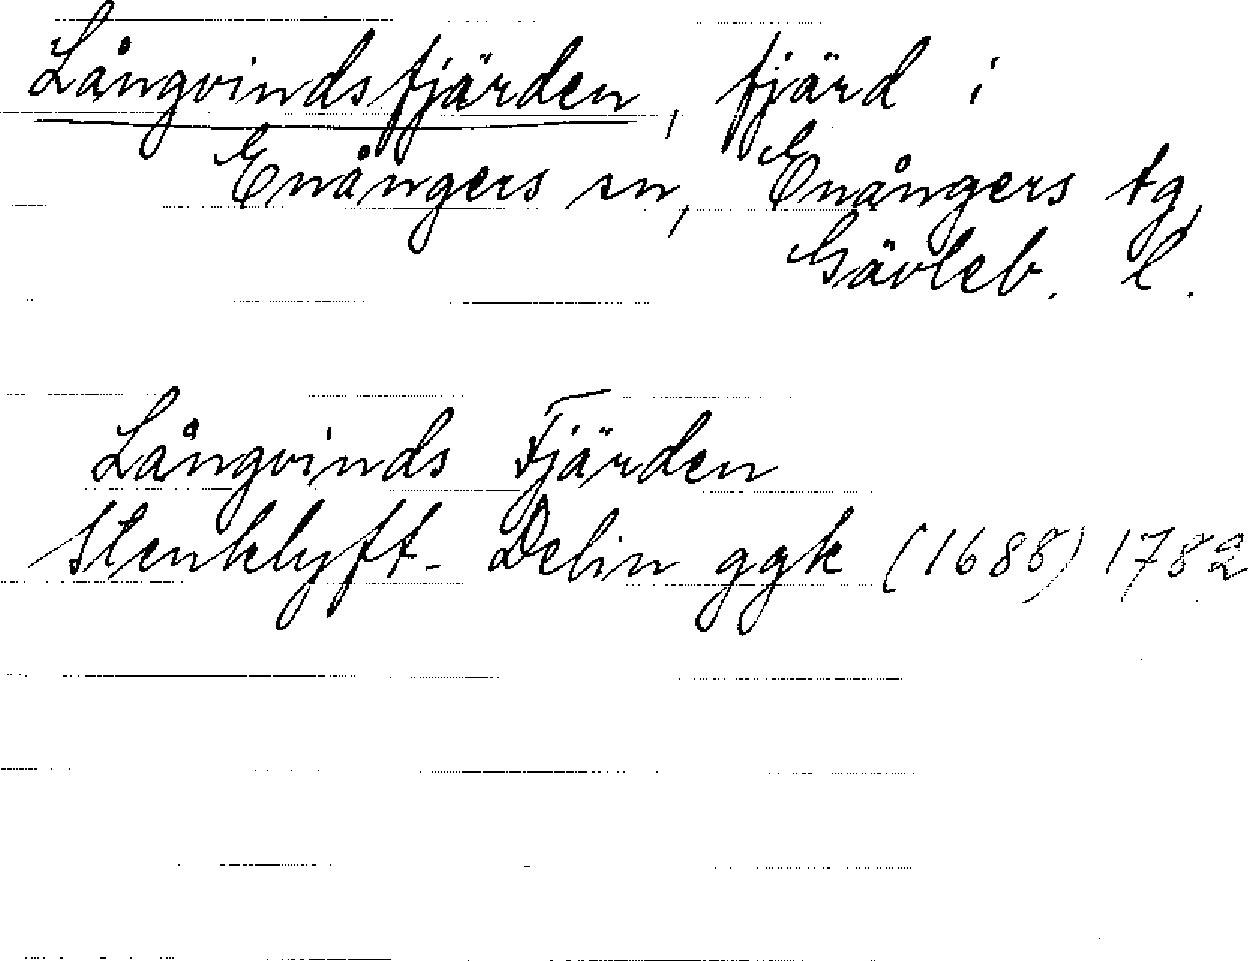 Långvindsfjärden, fjärd i
Enångers sn, Enångers tg,
Gävleb. l.
Långvinds Fjärden
Stenklyft-Delin ggk (1688) 1782